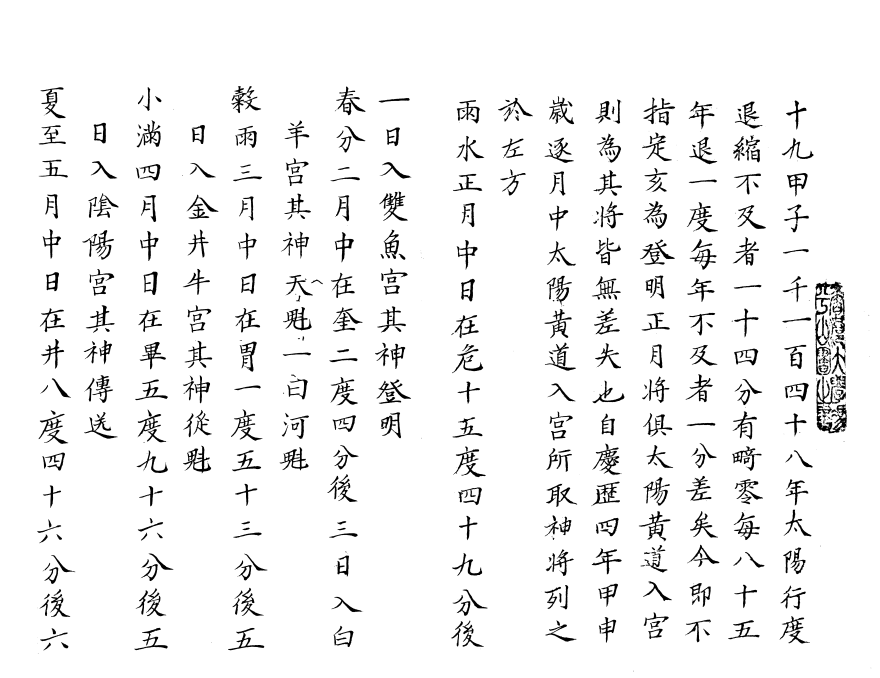 十九甲子一千一百四十八年太陽行度
退縮不及者一十四分有畸零每八十五
年退一度每年不及者一分差矣今即不
指定亥為登明正月將俱太陽黄道入宮
則為其將皆無差失也自慶歴四年甲申
歲逐月中太陽黄道入宮所取神將列之
於左方
雨水正月中日在危十五度四十九分後
一日入雙魚宮其神登明
春分二月中在奎二度四分後三日入白
羊宮其神天魁一白河魁
榖雨三月中日在胃一度五十三分後五
日入金井牛宮其神從魁
小滿四月中日在畢五度九十六分後五
日入陰陽宮其神傳送
夏至五月中日在井八度四十六分後六